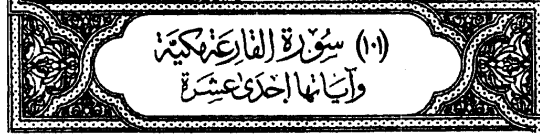 (١٠١) سُوْرَةُ الْقَارِعَةِ مَكِّيَّة
وَآيَاتُهَا إِحْدَىٰ عَشِرَة